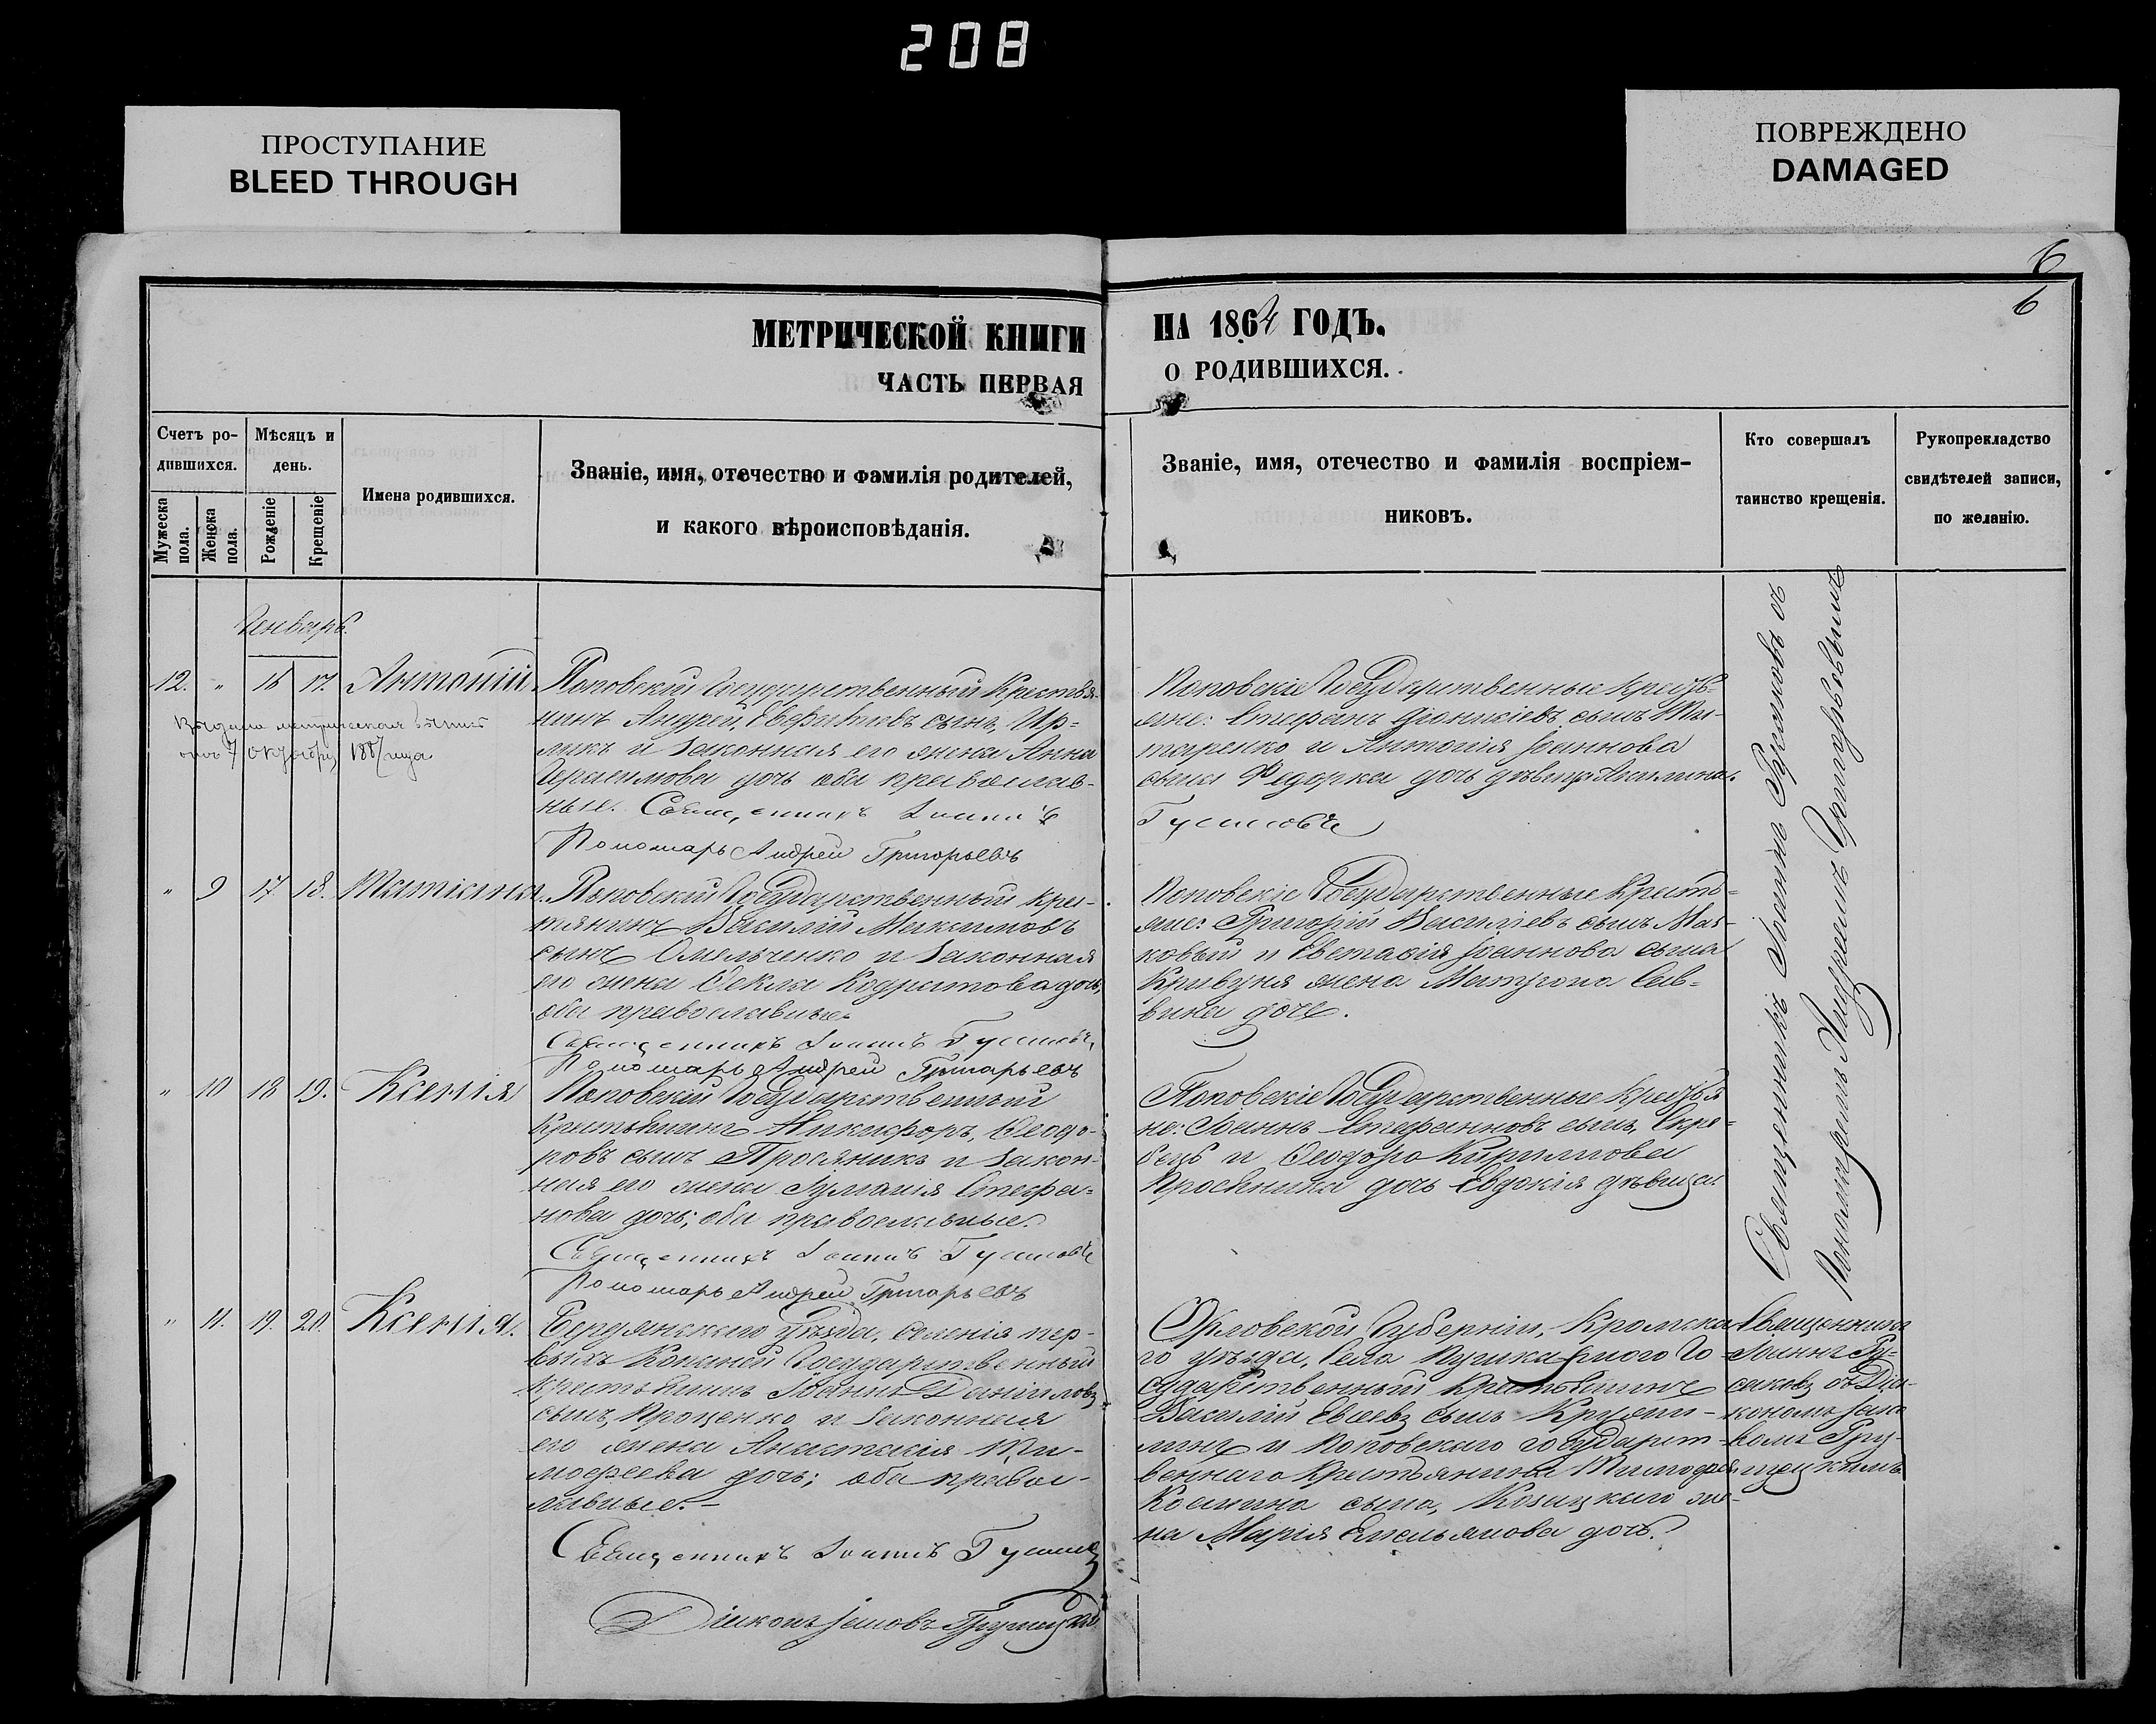 208
ПРОСТУПАНИЕ
BLEED THROUGH
ПОВРЕЖДЕНО
DAMAGED
6
6
МЕТРИЧЕСКОЙ КНИГИ
НА 1864 ГОДЪ.
ЧАСТЬ ПЕРВАЯ
О РОДИВШИХСЯ.
Счетъ ро-
дившихся.
Мужеска пола.
Женска пола.
Мѣсяцъ и
день.
Рожденіе
Крещеніе
Имена родившихся.
Званіе, имя, отечество и фамилія родителей,
и какого вѣроисповѣданія.
Званіе, имя, отечество и фамилія воспріем-
никовъ.
Кто совершалъ
таинство крещенія.
Рукоприкладство
свидѣтелей записи,
по желанію.
Генварь.
12. " 16 17. Антоній
Поповскій Государственный Крестья-
нинъ Андрей, сынъ, Яр-
и законная его жена Анна
Герасимова дочь оба православ-
ные. Священникъ Іоаннъ
Пономарь Андрей Григорьевъ
Поповскіе Государственные Крестья-
яне: Стефанъ Діонисіевъ сынъ Ти-
таренко и Антонія Іоаннова
сына Федорка дочь дѣвица
Гусаковъ
7 Октября 1887 года.
" 9 17 18. Татіана.
Поповскій Государственный Кре-
тянинъ Василій Максимовъ
сынъ Омельченко и законная
его жена Ѳекла Кодратова дочь,
оба православные.
Священникъ Іоаннъ Гусаковъ,
Пономарь Андрей Григорьевъ
Поповскіе Государственные Кресть-
яне: Григорій Василіевъ сынъ Мая-
ковый и Евстафія Іоаннова сына
Кривуня жена Матрона Сав-
вина дочь.
" 10 18 19. Ксенія
Поповскій Государственный
Крестьянинъ Никифоръ, Ѳеодо-
ровъ сынъ Просяникъ и закон-
ная его жена Іуліанія Стефа-
нова дочь; оба православные.
Священникъ Іоаннъ Гусаковъ
Пономарь Андрей Григорьевъ
Поповскіе Государственные Крестья
не: Іоаннъ Стефановъ сынъ, Скря-
бецъ и Ѳеодора Кириллова
Просяника дочь Евдокія дѣвица.
Священникъ Іоаннъ Гусаковъ съ
Пономаремъ Андреемъ Григорьевымъ
" 11. 19. 20. Ксенія.
Бердянскаго уѣзда, селенія пер-
выхъ Копаней Государственный
Крестьянинъ Іоаннъ Даніиловъ
сынъ, Проценко и законная
его жена Анастасія Ти-
мофеева дочь; оба правос-
лавные.
Священникъ Іоаннъ Гусаковъ
Діаконъ Іаковъ Грушецкій
Орловской Губерніи, Кромска
го уѣзда, села Пушкарного Го-
сударственный Крестьянинъ
Василій Евсеевъ сынъ
и Поповскаго государст-
веннаго Крестьянина Тимофея
Космина сына, Козицкаго же-
на Марія Емельянова дочь.
Священникъ
Іоаннъ Гу-
саковъ съ Діа-
кономъ Іако
вомъ Гру-
шецкимъ